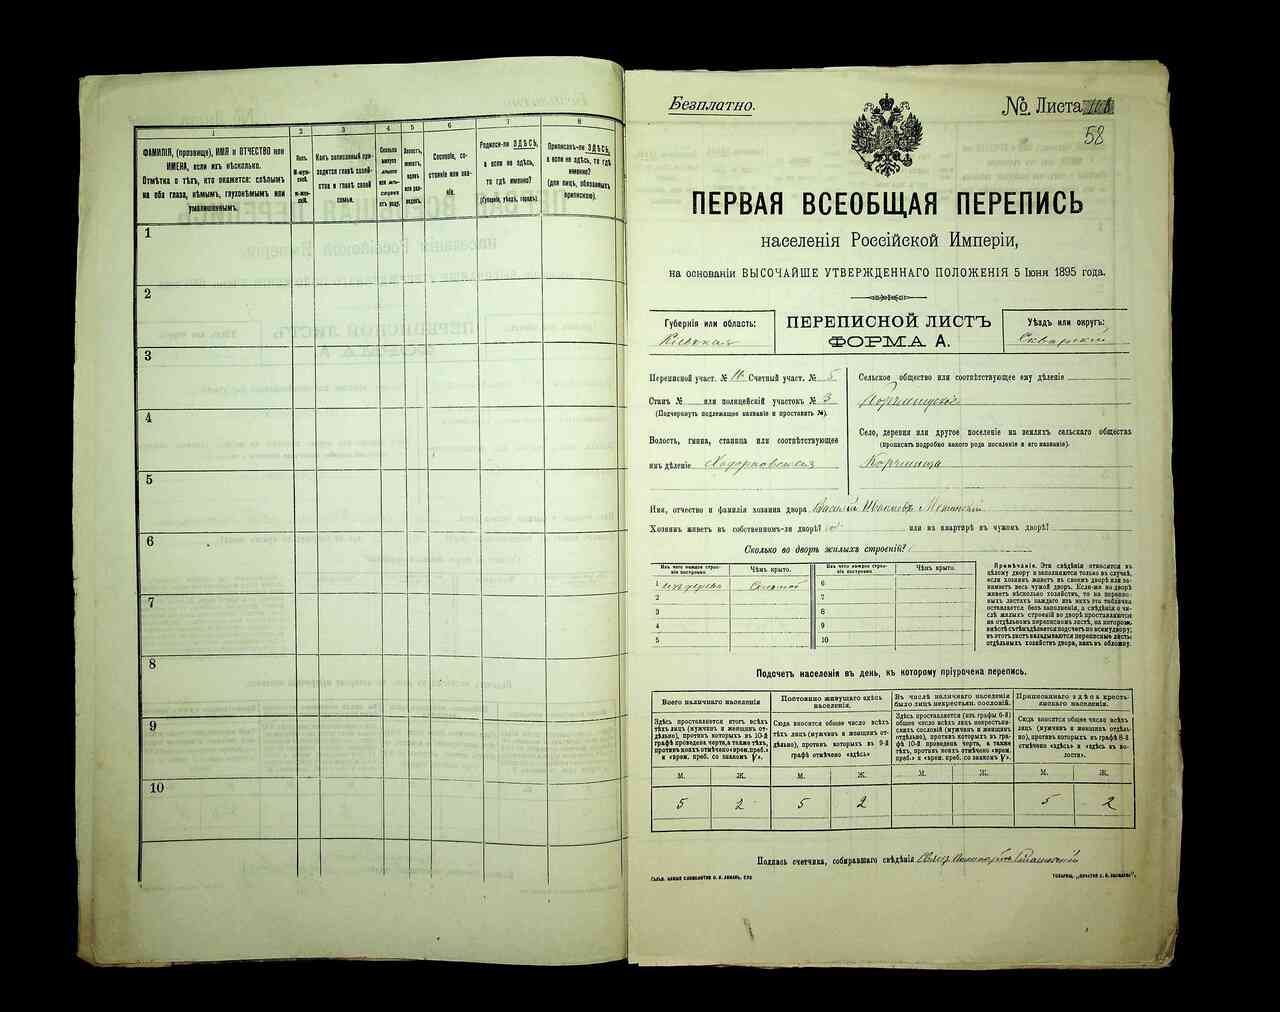 1
ФАМИЛІЯ, (прозвище), ИМЯ и ОТЧЕСТВО или
ИМЕНА, если ихъ нѣсколько.
Отмѣтка о тѣхъ, кто окажется: слѣпымъ
на оба глаза, нѣмымъ, глухонѣмымъ или
умалишеннымъ.
2
Полъ.
М-муж-
ской.
Ж-жен-
скій.
3
Какъ записанный при-
ходится главѣ хозяй-
ства и главѣ своей
семьи.
4
Сколько
минуло
лѣтъ
или мѣ-
сяцевъ
отъ роду.
5
Холостъ,
женатъ,
вдовъ
или раз-
веденъ.
6
Сословіе, со-
стояніе или зва-
ніе.
7
Родился-ли ЗДѢСЬ,
а если не здѣсь,
то гдѣ именно?
(Губернія, уѣздъ, городъ).
8
Приписанъ-ли ЗДѢСЬ,
а если не здѣсь, то гдѣ
именно?
(для лицъ, обязанныхъ
припискою).
1
2
3
4
5
6
7
8
9
10
Безплатно.
№ Листа
58
ПЕРВАЯ ВСЕОБЩАЯ ПЕРЕПИСЬ
населенія Россійской Имперіи,
на основаніи ВЫСОЧАЙШЕ УТВЕРЖДЕННАГО ПОЛОЖЕНІЯ 5 Іюня 1895 года.
Губернія или область:
Кіевская
ПЕРЕПИСНОЙ ЛИСТЪ
ФОРМА А.
Уѣздъ или округъ:
Сквирскій
Переписной участ. № 14 Счетный участ. № 5
Станъ № или полицейскій участокъ № 3
(Подчеркнуть подлежащее названіе и проставить №).
Волость, гмина, станица или соотвѣтствующее
имъ дѣленіе Ходорковская
Сельское общество или соотвѣтствующее ему дѣленіе
Село, деревня или другое поселеніе на земляхъ сельскаго общества
(прописать подробно какого рода поселеніе и его названіе).
Имя, отчество и фамилія хозяина двора Василій Ивановъ
Хозяинъ живетъ въ собственномъ-ли дворѣ? или въ квартирѣ въ чужомъ дворѣ?
Сколько во дворѣ жилыхъ строеній?
Изъ чего каждое строе-
ніе построено. Чѣмъ крыто. Изъ чего каждое строе-
ніе построено. Чѣмъ крыто.
1 изъ дерева Соломой 6
2 7
3 8
4 9
5 10
Примѣчаніе. Эти свѣдѣнія относятся къ
цѣлому двору и заполняются только въ случаѣ,
если хозяинъ живетъ въ своемъ дворѣ или за-
нимаетъ весь чужой дворъ. Если-же во дворѣ
живетъ нѣсколько хозяйствъ, то на перепис-
ныхъ листахъ каждаго изъ нихъ эта табличка
оставляется безъ заполненія, а свѣдѣнія о чи-
слѣ жилыхъ строеній во дворѣ проставляются
на отдѣльномъ переписномъ листѣ, на которомъ
вмѣстѣ съ тѣмъ дѣлается подсчетъ по всему двору;
въ этотъ листъ вкладываются переписные листы
отдѣльныхъ хозяйствъ двора, какъ въ обложку.
Подсчетъ населенія въ день, къ которому пріурочена перепись.
Всего наличнаго населенія
Здѣсь проставляется итогъ всѣхъ
тѣхъ лицъ (мужчинъ и женщинъ от-
дѣльно), противъ которыхъ въ 10-й
графѣ проведена черта, а также тѣхъ,
противъ коихъ отмѣчено «врем. преб.»
и «врем. преб. со знакомъ V».
Постоянно живущаго здѣсь
населенія.
Сюда вносится общее число всѣхъ
тѣхъ лицъ (мужчинъ и женщинъ от-
дѣльно), противъ которыхъ въ 9-й
графѣ отмѣчено «здѣсь»
Въ числѣ наличнаго населенія
было лицъ некрестьян. сословій.
Здѣсь проставляется (изъ графы 6-й)
общее число всѣхъ лицъ некрестьян-
скихъ сословій (мужчинъ и женщинъ
отдѣльно), противъ которыхъ въ гра-
фѣ 10-й проведена черта, а также
тѣхъ, противъ коихъ отмѣчено «врем.
преб.» и «врем. преб. со знакомъ V».
Приписаннаго здѣсь кресть-
янскаго населенія.
Сюда вносится общее число всѣхъ
лицъ (мужчинъ и женщинъ отдѣль-
но), противъ которыхъ въ графѣ 8-й
отмѣчено «здѣсь» и «здѣсь въ во-
лости».
М. Ж. М. Ж. М. Ж. М. Ж.
5 2 5 2 5 2
Подпись счетчика, собиравшаго свѣдѣнія